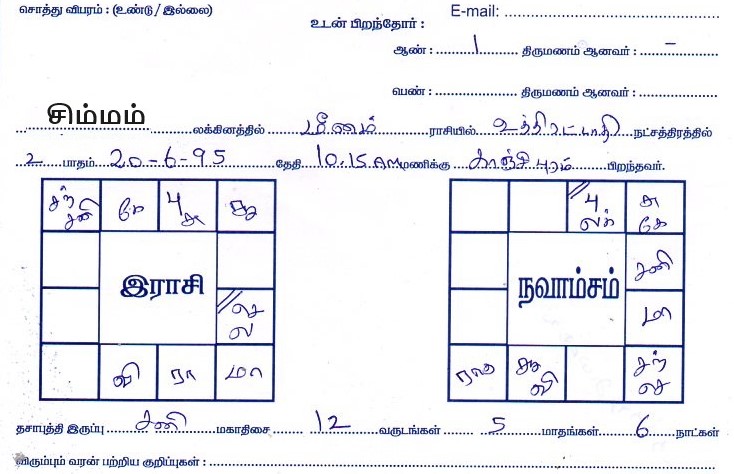 சொத்து விபரம் : (உண்டு / இல்லை)
E-mail:
உடன் பிறந்தோர் :
ஆண் : 1 திருமணம் ஆனவர் : –
பெண் : திருமணம் ஆனவர் :
சிம்மம் லக்கினத்தில் மீனம் ராசியில் உத்திரட்டாதி நட்சத்திரத்தில்
2 பாதம் 20-6-95 தேதி 10.15 AM மணிக்கு காஞ்சிபுரம் பிறந்தவர்.
சந் சனி கே பு சு சூ
பு லக் சு கே
இராசி
நவாம்சம்
சனி
செ ல
மா
வி ரா மா
ராகு சூ வி சந் செ
தசாபுத்தி இருப்பு சனி மகாதிசை 12 வருடங்கள் 5 மாதங்கள் 6 நாட்கள்
விரும்பும் வரன் பற்றிய குறிப்புகள் :